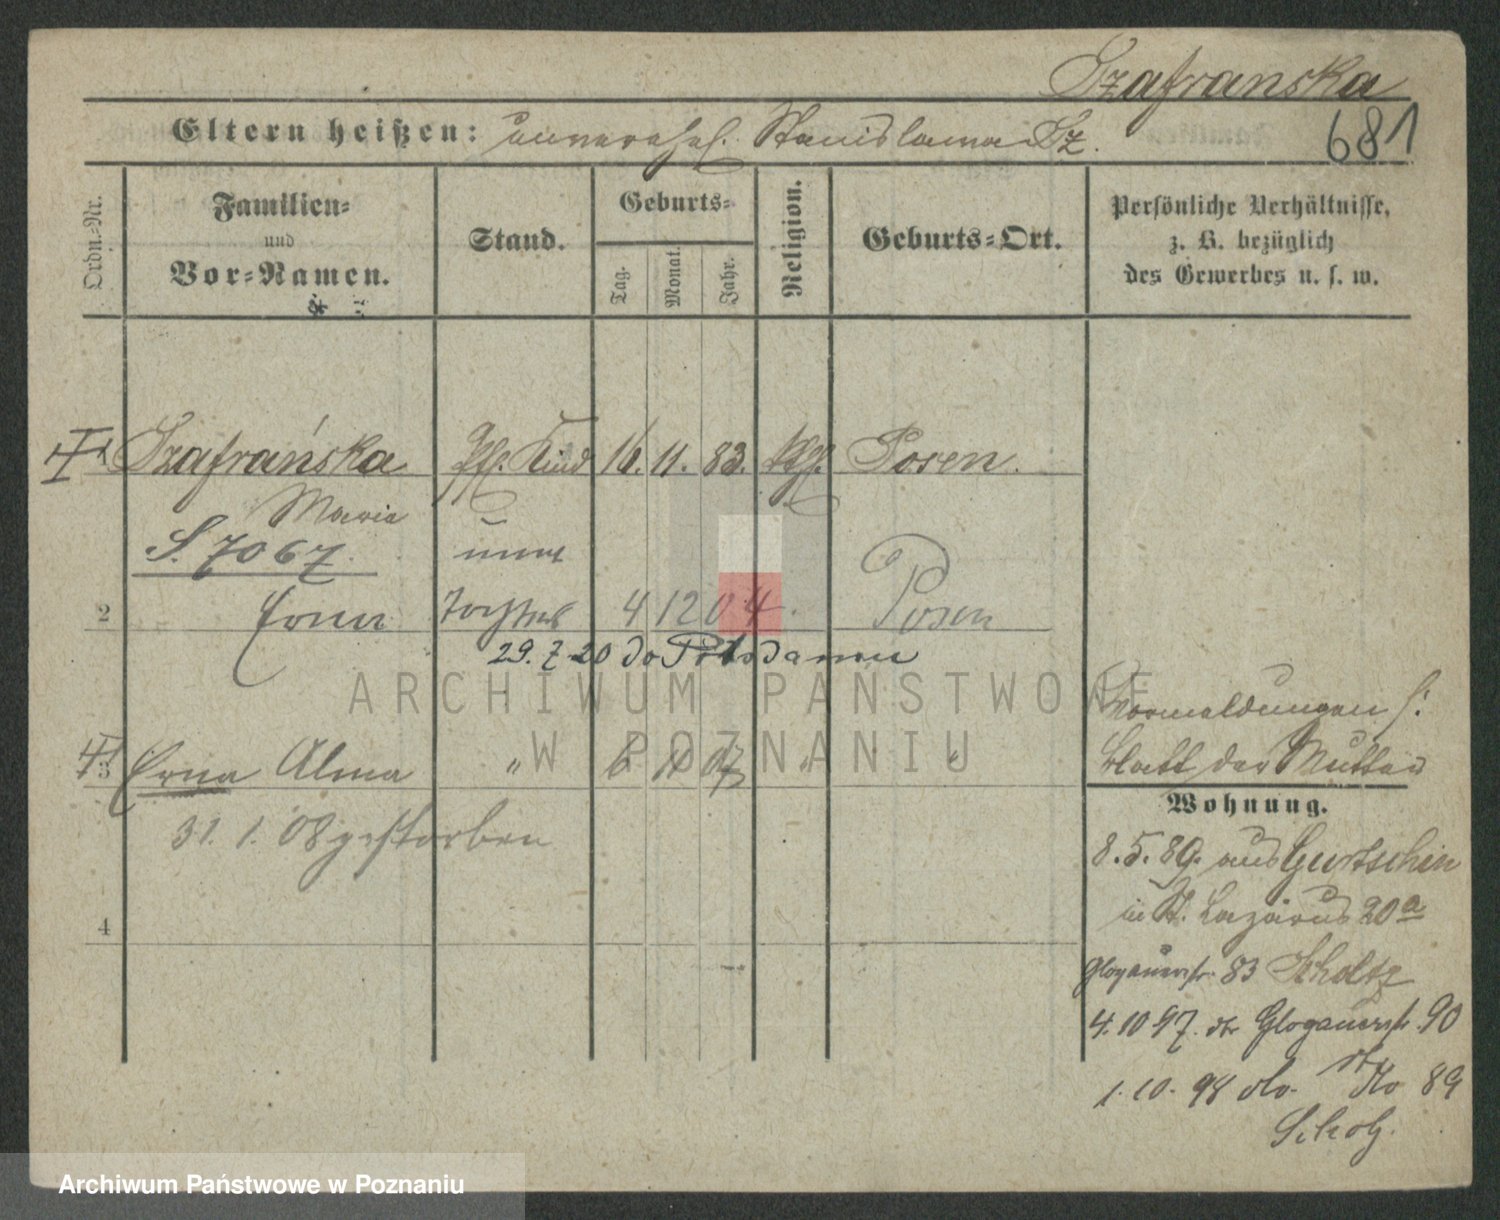 Szafranska
681
Eltern heißen: unverehel. Stanislawa Sz.
Ordn.-Nr.
Familien-
und
Vor-Namen.
Stand.
Geburts-
Tag.
Monat.
Jahr.
Religion.
Geburts-Ort.
Persönliche Verhältnisse,
z. B. bezüglich
des Gewerbes u. s. w.
Szafrańska Kind 16. 11. 83. kath. Posen.
Maria
S. 7067 unver
2 Erna Tochter 4 12 04. Posen
29. 7. 20 do Potsdamu
3 Erna Alma " 6 11 07 " "
31. 1. 08 gestorben
4
Vormeldungen s:
Blatt der Mutter
Wohnung.
8. 5. 89. aus Gurtschin
in St. Lazarus 20a
Glogauerstr. 83 Scholtz
4. 10 97. Glogauerstr. 90
1. 10. 98 do. No 89
Scholz.
ARCHIWUM PAŃSTWOWE
W POZNANIU
Archiwum Państwowe w Poznaniu